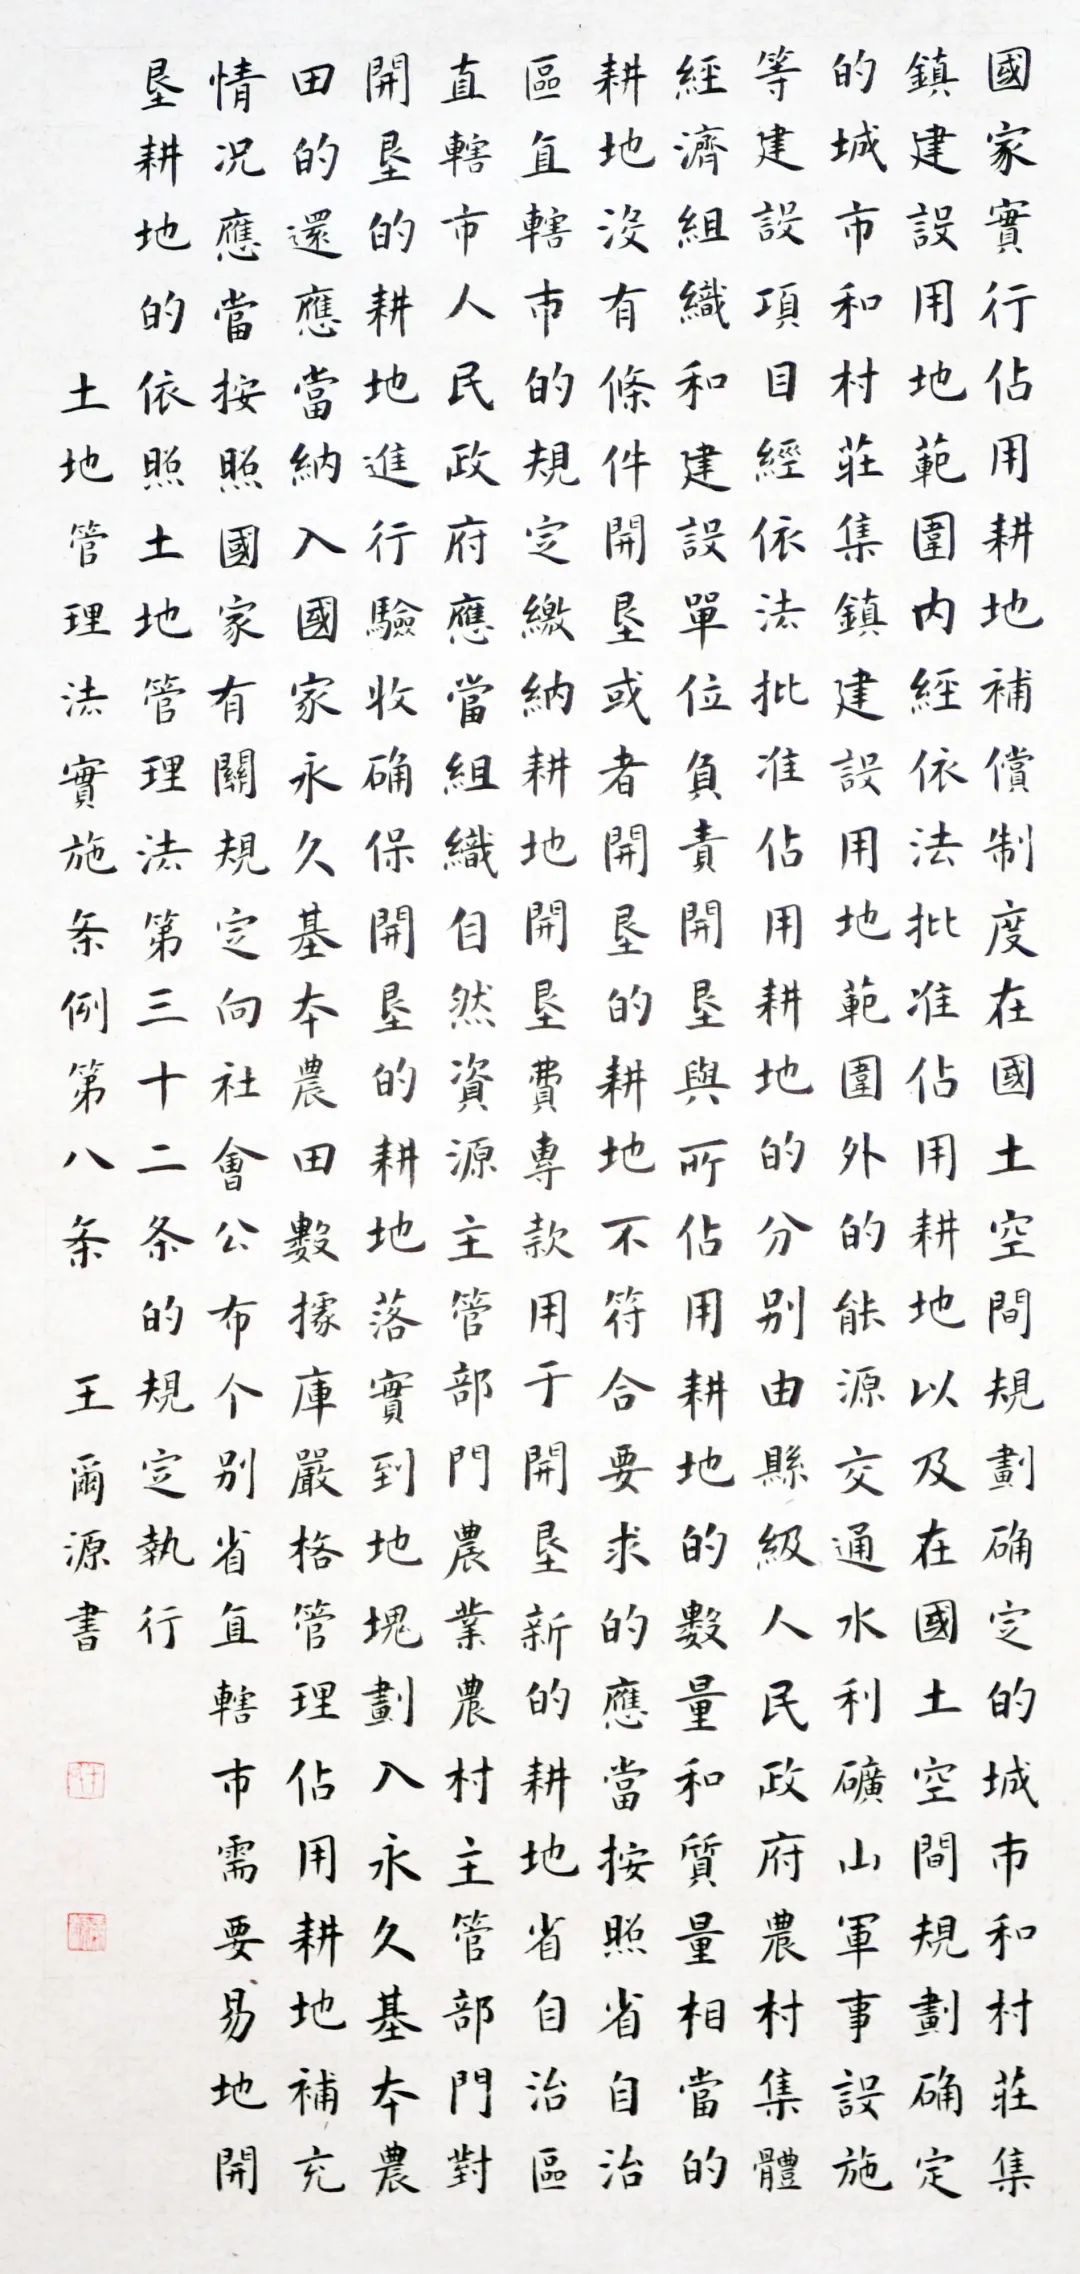 國家實行佔用耕地補償制度在國土空間規劃确定的城市和村莊集
鎮建設用地範圍内經依法批准佔用耕地以及在國土空間規劃确定
的城市和村莊集鎮建設用地範圍外的能源交通水利礦山軍事設施
等建設項目經依法批准佔用耕地的分别由縣級人民政府農村集體
經濟組織和建設單位負責開垦與所佔用耕地的數量和質量相當的
耕地没有條件開垦或者開垦的耕地不符合要求的應當按照省自治
區直轄市的規定繳納耕地開垦費專款用于開垦新的耕地省自治區
直轄市人民政府應當組織自然資源主管部門農業農村主管部門對
開垦的耕地進行驗收确保開垦的耕地落實到地塊劃入永久基本農
田的還應當納入國家永久基本農田數據庫嚴格管理佔用耕地補充
情况應當按照國家有關規定向社會公布个别省直轄市需要易地開
垦耕地的依照土地管理法第三十二条的規定執行
土地管理法實施条例第八条 王爾源書